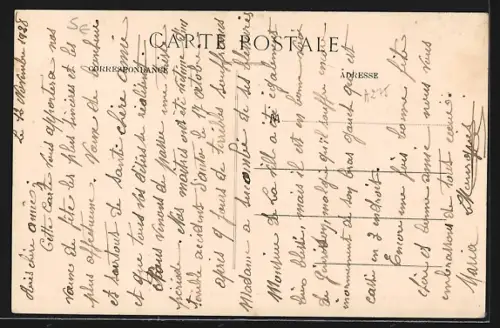 CARTE POSTALE
CORRESPONDANCE
ADRESSE
Le 12 Novembre 1928
Bien chère amie,
Cette Carte vous apportera nos
vœux de fête les plus sincères et les
plus affectueux. Vœux de bonheur
et surtout de Santé chère amie
et que tous vos désirs se réalisent.
Nous venons de passer une triste
période. Mes maîtres ont été victimes d'un
terrible accident d'auto le 17 octobre
après 9 jours de terribles souffrances
Madame a succombé de ses blessures
Monsieur de La Ville a été également
très blessé, mais il est en bonne voie
de guérison, malgré qu'il souffre énor-
mément de son bras gauche qui est
cassé en 3 endroits.
Encore une fois bonne fête
chère et bonne amie nous vous
embrassons de tout cœur.
Maria